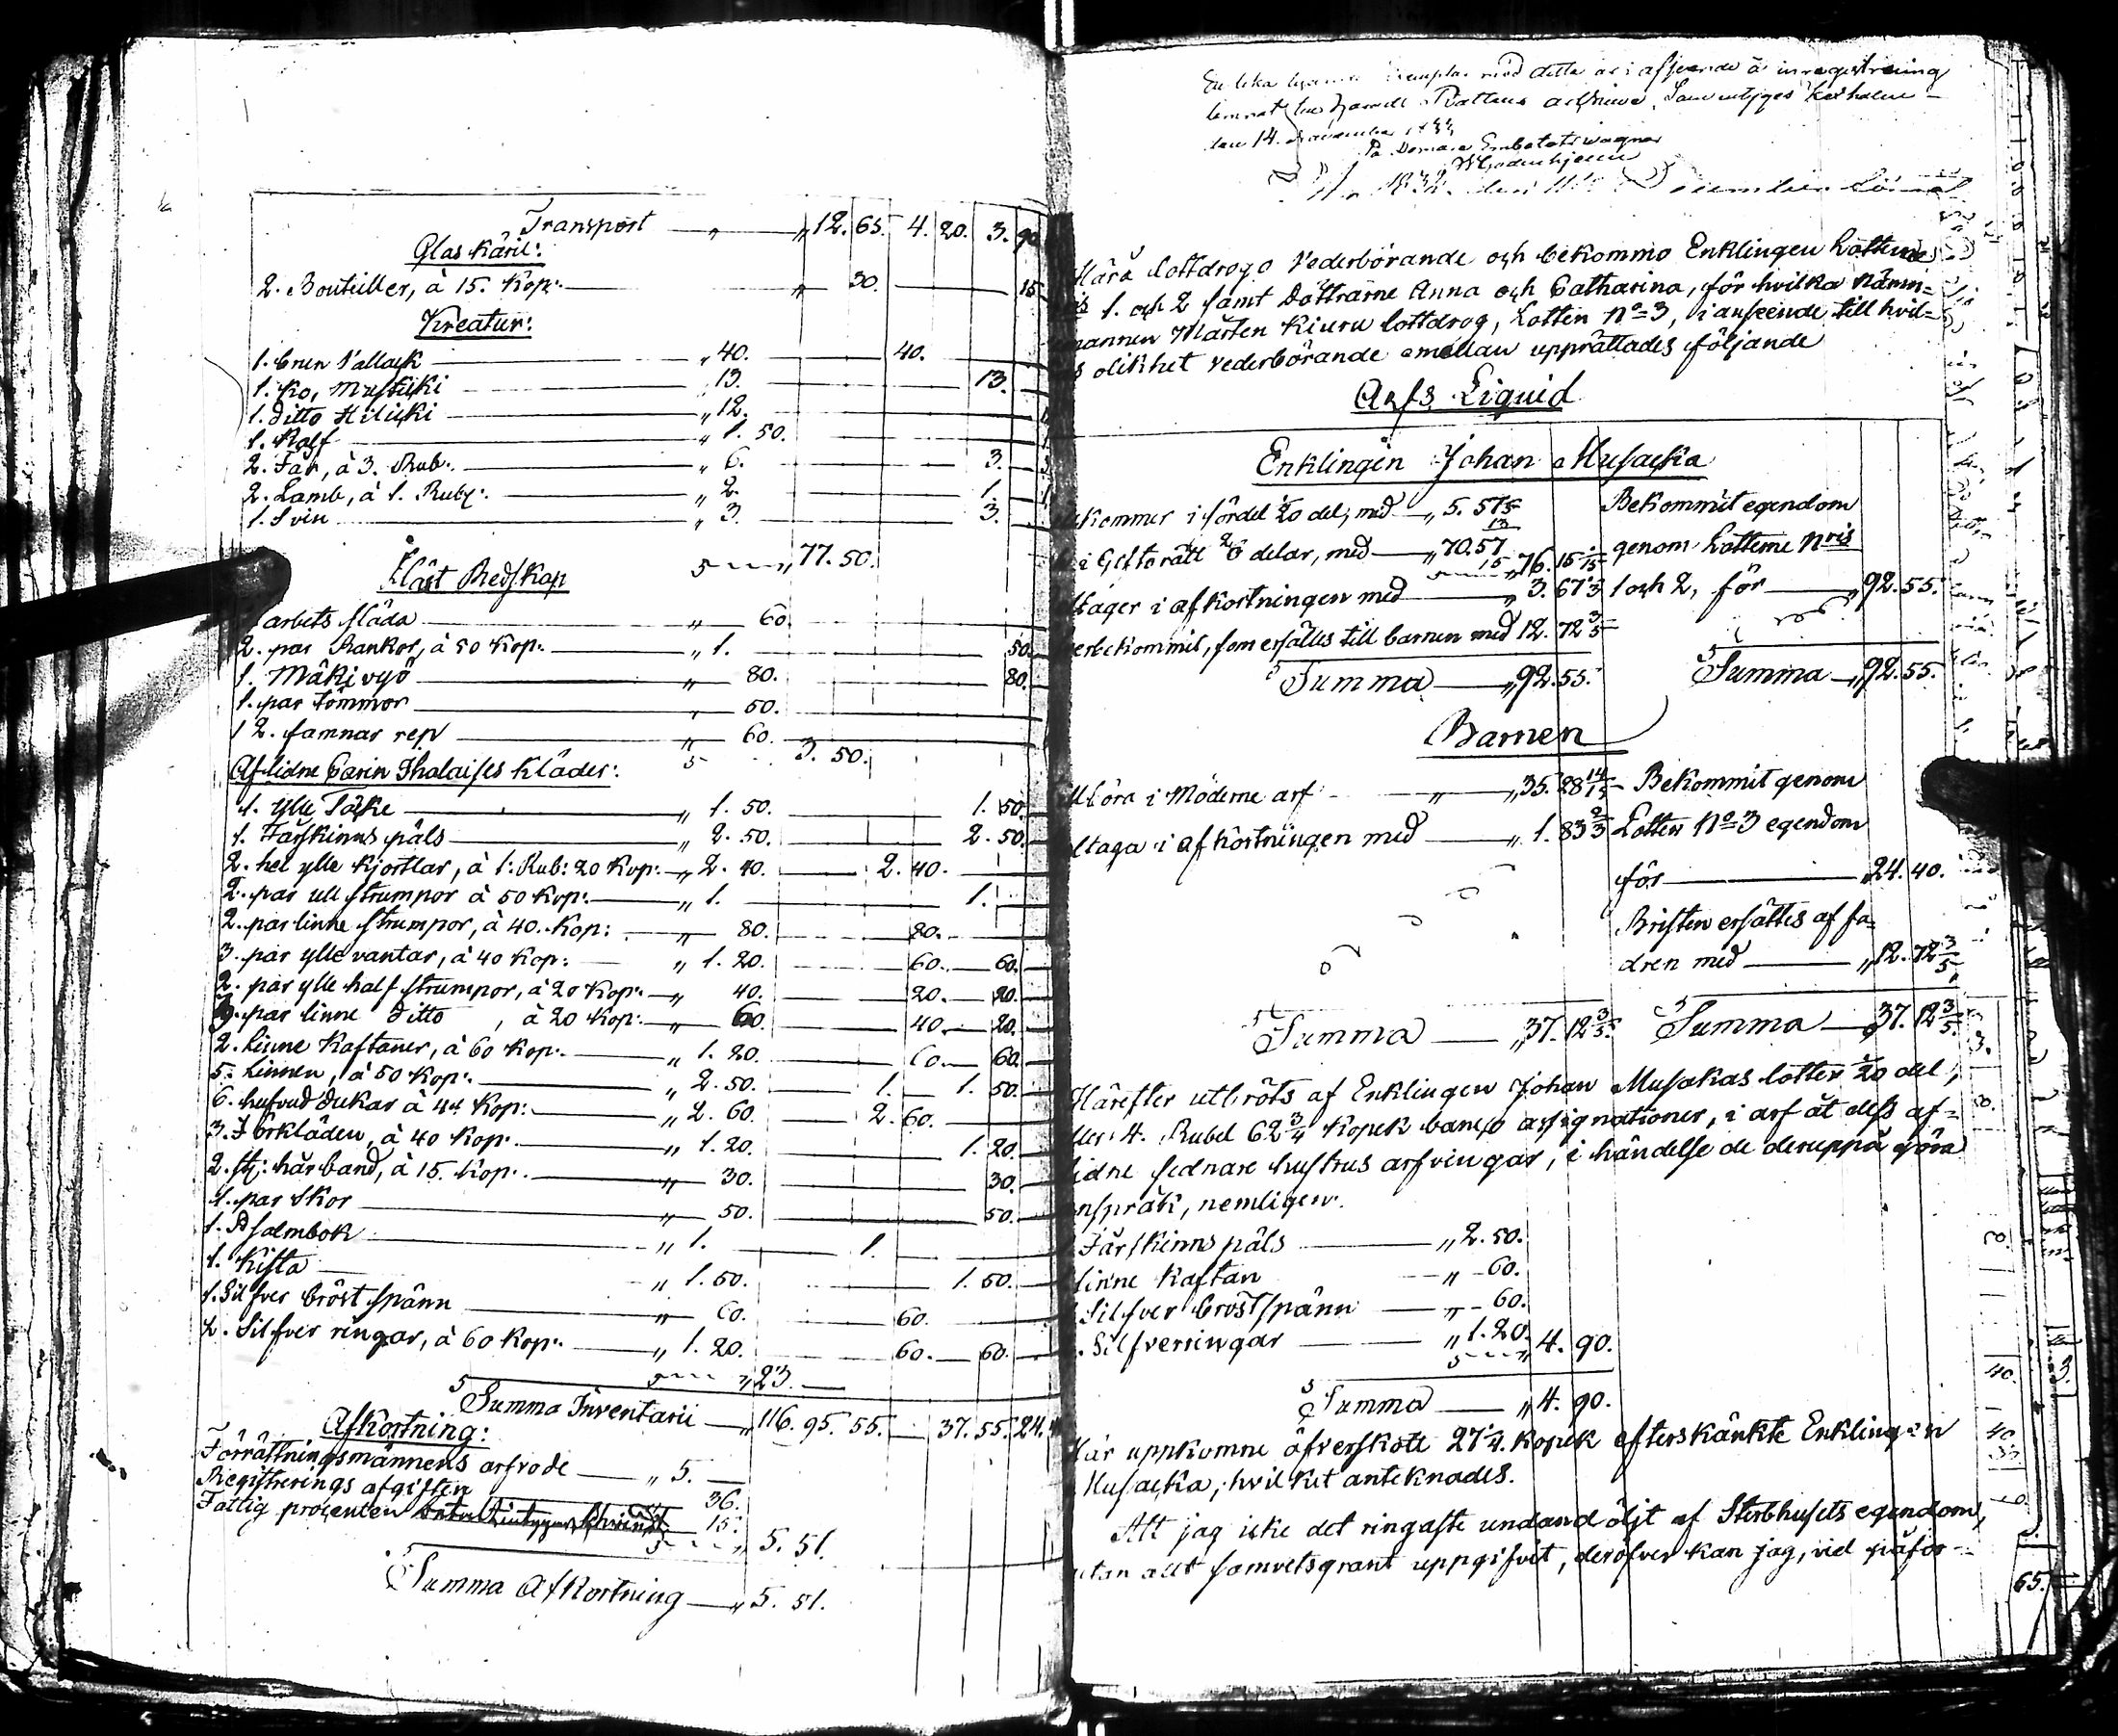 Transport — " — " 12. 65. 4. 20. 3. 90
Glas Käril:
2. Bouteiller, à 15. Kop: — " 30. — 15
Kreatur:
1. brun Vallack — " 40. — 40.
1. Ko, Musticki — " 13. — 13.
1. Ditto Hilicki — " 12. —
1. Kalf — " 1. 50. —
2. Får, à 3. Rub: — " 6. — 3.
2. Lamb, à 1. Rub: — " 2. — 1.
1. Svin — " 3. — 3.
" 77. 50.
Häst Redskap
arbets släda — " 60.
2. par Rankor, à 50 Kop: — " 1. — 50.
1. Mäkivyö — " 80. — 80.
1. par tömmor — " 50.
12. famnar rep — " 60.
3. 50.
Aflidne Carin Ihalaises kläder:
1. ylle Töcke — " 1. 50. — 1. 50.
1. Fårskinns päls — " 2. 50. — 2. 50.
2. hel ylle kjortlar, à 1: Rub: 20 Kop: — " 2. 40. — 2. 40.
2. par ull strumpor à 50 Kop: — " 1. — 1.
2. par linne strumpor, à 40. Kop: — " 80. — 80.
3. par ylle vantar, à 40 Kop: — " 1. 20. — 60. — 60.
2. par ylle half strumpor, à 20 Kop: — " 40. — 20. — 20.
3. par linne ditto, à 20 Kop: — " 60. — 40. — 20.
2. linne Kaftaner, à 60 Kop: — " 1. 20. — 60. — 60.
5. Linnen, à 50 Kop: — " 2. 50. — 1. — 1. 50.
6. hufvud dukar à Kop: — " 2. 60. — 2. 60.
3. Förkläden, à 40 Kop: — " 1. 20. — 1. 20.
2. st: hår band, à 15. Kop: — " 30. — 30.
1. par Skor — " 50. — 50.
1. Psalmbok — " 1. — 1.
1. Kista — " 1. 50. — 1. 50.
1. Silfver bröst spänn — " 60. — 60.
2. Silfver ringar, à 60 Kop: — " 1. 20. — 60. — 60.
" 23. —
Summa Inventarii — " 116. 95. 55. — 37. 55. 24.
Afkortning:
Förrättningsmännens arfvode — " 5. —
Registrerings afgiften 36.
Fattig procenten 15.
" 5. 51.
Summa Afkortning — " 5. 51.
En lika med detta är i afseende å inregistrering
lemnat
den 14.
På Domare Embetets vägnar
December
Härå lottdrogo Vederbörande och bekommo Enklingen Lotterne
1. och 2 samt Döttrarne Anna och Catharina, för hvilka Näm=
mannen Mårten Kiuru lottdrog, Lotten No 3, i anseende till hvil=
s olikhet vederbörande emellan upprättades följande
Arfs Liquid
Enklingen Johan Musacka
ekommer i fördel 1/20 del, med — " 5. 57
i Giftorätt 2/3 delar, med — " 70. 57 13/15 " 76. 15
ltager i afkortningen med — " 3. 67 1/3
erbekommit, som ersättes till barnen med 12. 72 3/5
Summa — " 92. 55.
Bekommit egendom
genom Lotterne Nris
1 och 2, för — " 92. 55.
Summa — " 92. 55.
Barnen
llböra i Möderne arf — " — " 35. 28 14/15
ltaga i afkortningen med — " 1. 83 2/3
Summa — " 37. 12 3/5.
Bekommit genom
Lotten No 3 egendom
för — 24. 40.
Bristen ersättes af fa=
dren med — " 12. 72 3/5
Summa — " 37. 12 3/5.
Härefter utbröts af Enklingen Johan Musackas lotter 1/20 del,
ller 4. Rubel 62 3/4 Kopek banco assignationer, i arf åt dess af=
lidne sednare hustrus arfvingar, i händelse de deruppå göra
nspråk, nemligen:
Fårskinns päls — " 2. 50.
linne Kaftan — " - 60.
Silfver bröstspänn — " - 60.
Silfverringar — " 1. 20. 4. 90.
Summa — " 4. 90.
Här uppkomne öfverskott 27 1/4. Kopek efterskänkte Enklingen
Musacka, hvilket anteknades.
Att jag icke det ringaste undandöljt af Sterbhusets egendom,
utan allt samvetsgrant uppgifvit, deröfver kan jag, vid påfor-
65.